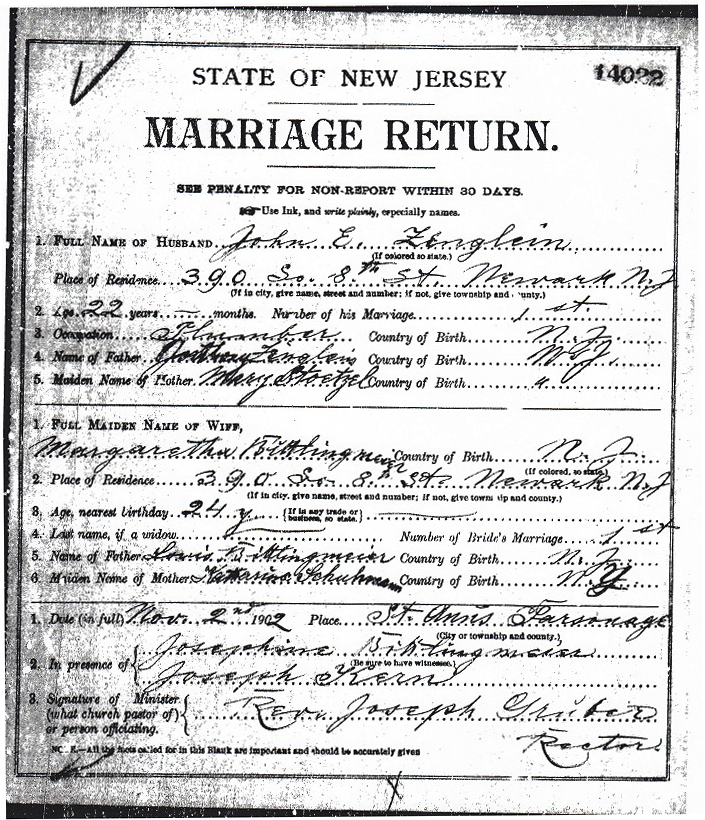 14022
STATE OF NEW JERSEY
MARRIAGE RETURN.
SEE PENALTY FOR NON-REPORT WITHIN 30 DAYS.
Use Ink, and write plainly, especially names.
1. FULL NAME OF HUSBAND John E. Zenglein
(If colored so state.)
Place of Residence 390 So. 8th St. Newark N.J
(If in city, give name, street and number; if not, give township and county.)
2. Age 22 years months. Number of his Marriage 1st.
3. Occupation Plumber Country of Birth N.J.
4. Name of Father Zenglein Country of Birth
5. Maiden Name of Mother Mary Stoetzel Country of Birth "
1. FULL MAIDEN NAME OF WIFE,
Margaretha Bittlingmeier Country of Birth N.J.
(If colored, so state.)
2. Place of Residence 390 So. 8th St. Newark N.J
(If in city, give name, street and number; if not, give township and county.)
3. Age, nearest birthday 24 y. {If in any trade or business, so state.}
4. Last name, if a widow Number of Bride's Marriage 1st
5. Name of Father Louis Bittlingmeier Country of Birth N.J.
6. Maiden Name of Mother Katharina Schuhmann Country of Birth N.Y
1. Date (in full) Nov. 2nd 1902 Place St. Ann's Parsonage
(City or township and county.)
2. In presence of { Josephine Bittlingmeier
(Be sure to have witnesses.)
Joseph Kern
3. Signature of Minister (what church pastor of) or person officiating. { Rev. Joseph Gruber
Rector
NOTE.—All the facts called for in this Blank are important and should be accurately given